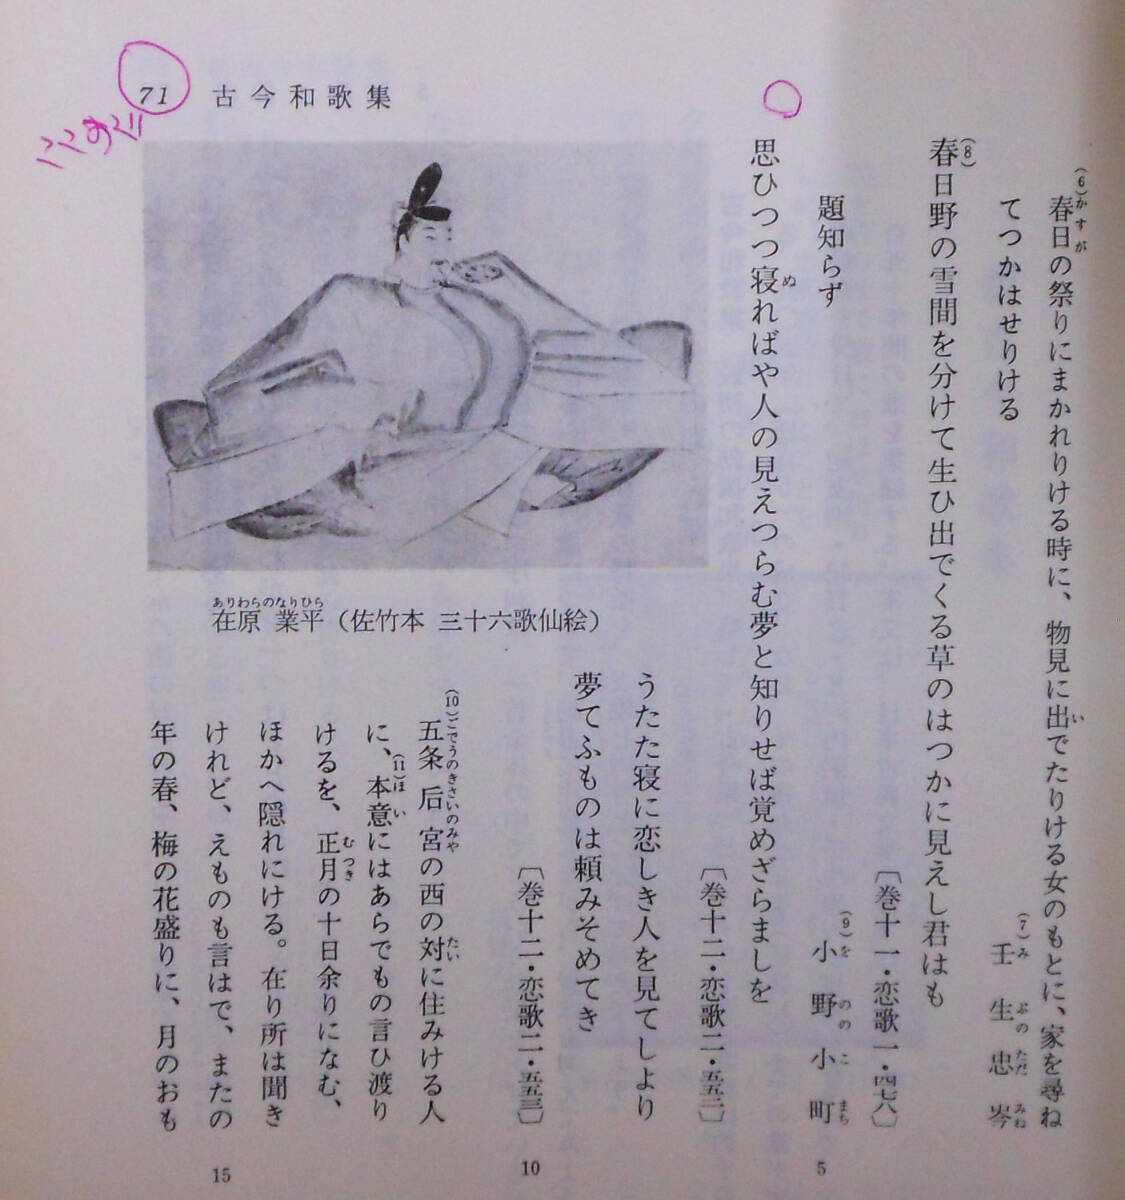 71 古今和歌集
(6)かすが
春日の祭りにまかれりける時に、物見に出でたりける女のもとに、家を尋ね
い
てつかはせりける
(7)みぶのただみね
壬生忠岑
(8)
春日野の雪間を分けて生ひ出でくる草のはつかに見えし君はも
〔巻十一・恋歌一・四七八〕
題知らず
(9)をののこまち
小野小町
思ひつつ寝ればや人の見えつらむ夢と知りせば覚めざらましを
ぬ
〔巻十二・恋歌二・五五二〕
うたた寝に恋しき人を見てしより
夢てふものは頼みそめてき
〔巻十二・恋歌二・五五三〕
ありわらのなりひら
在原 業平（佐竹本 三十六歌仙絵）
(10)ごでうのきさいのみや たい
五条 后 宮の西の対に住みける人
(11)ほい
に、本意にはあらでもの言ひ渡り
むつき
けるを、正月の十日余りになむ、
ほかへ隠れにける。在り所は聞き
けれど、えものも言はで、またの
年の春、梅の花盛りに、月のおも
5
10
15